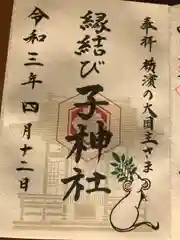 奉拝 横濱の大国主さま
縁結び
子神社
令和三年四月十二日